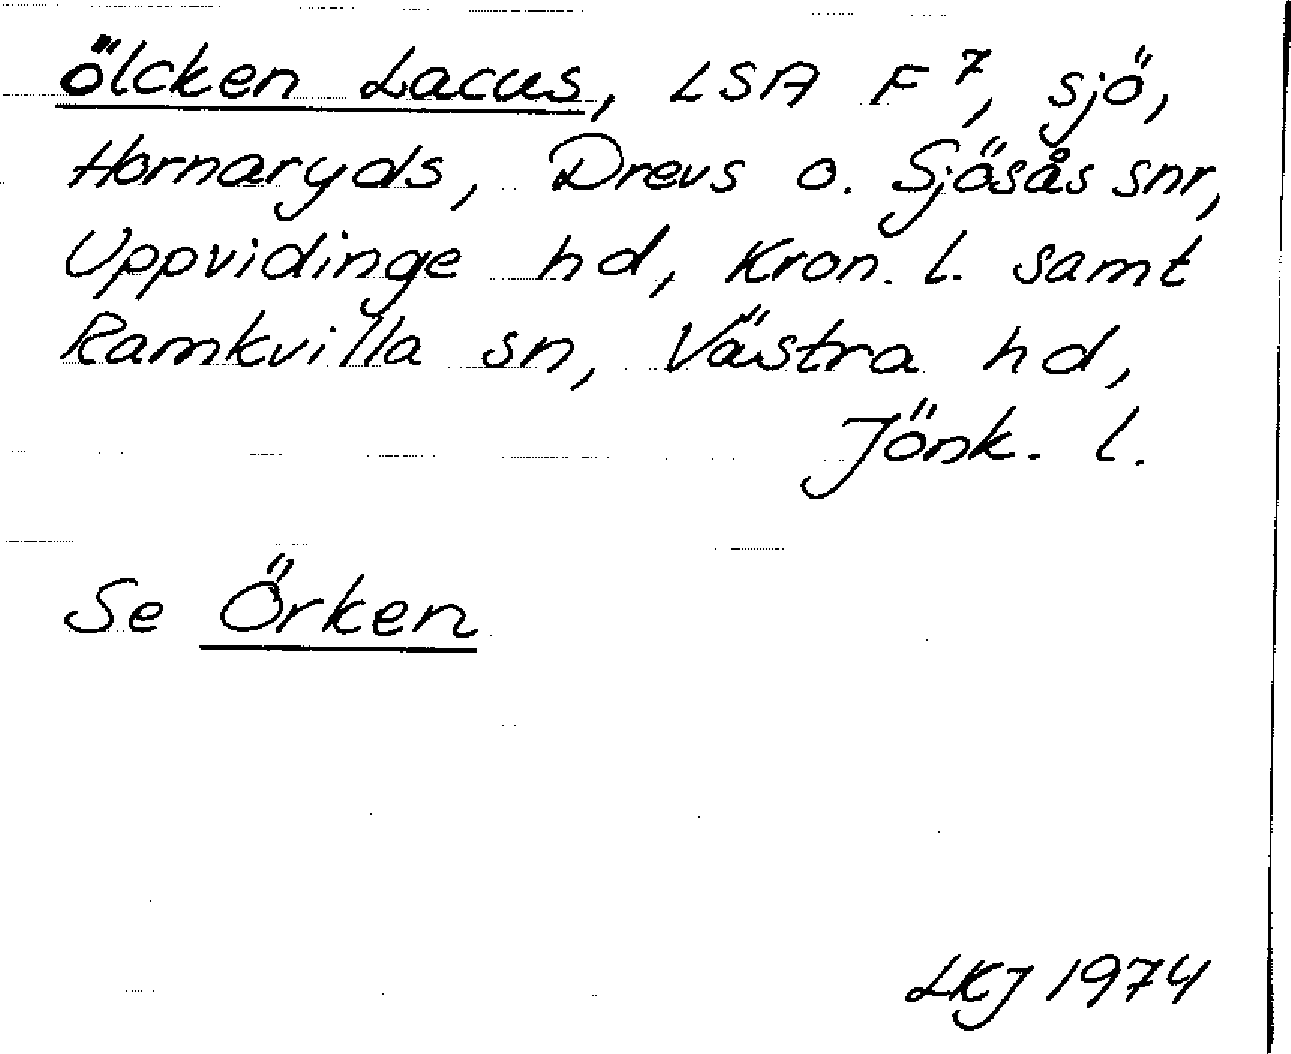 Ölcken Lacus, LSA F⁷, sjö,
Hornaryds, Drevs o. Sjösås snr,
Uppvidinge hd, Kron. l. samt
Ramkvilla sn, Västra hd,
Jönk. l.
Se Örken
LKJ 1974